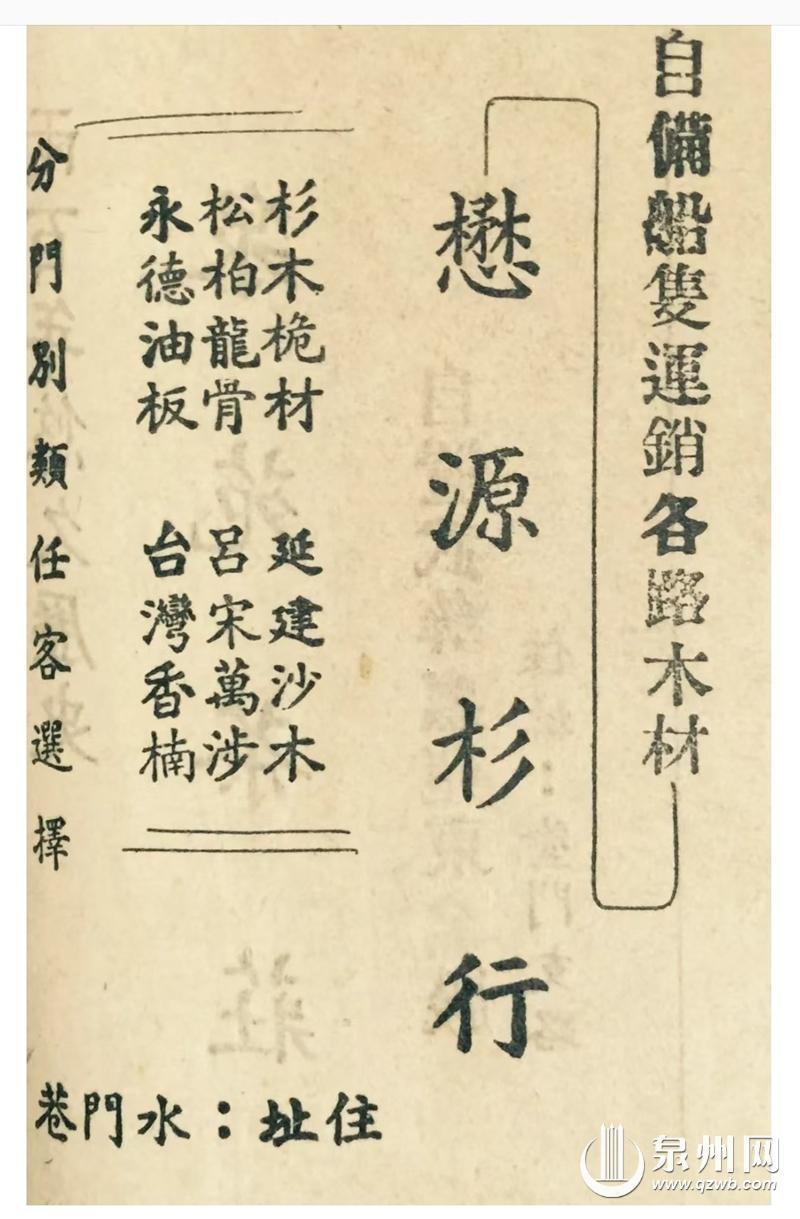 自備船隻運銷各路木材
懋源杉行
杉木桅材 延建沙木
松柏龍骨 呂宋萬涉
永德油板 台灣香楠
分門別類任客選擇
住址：水門巷
泉州网
www.qzwb.com